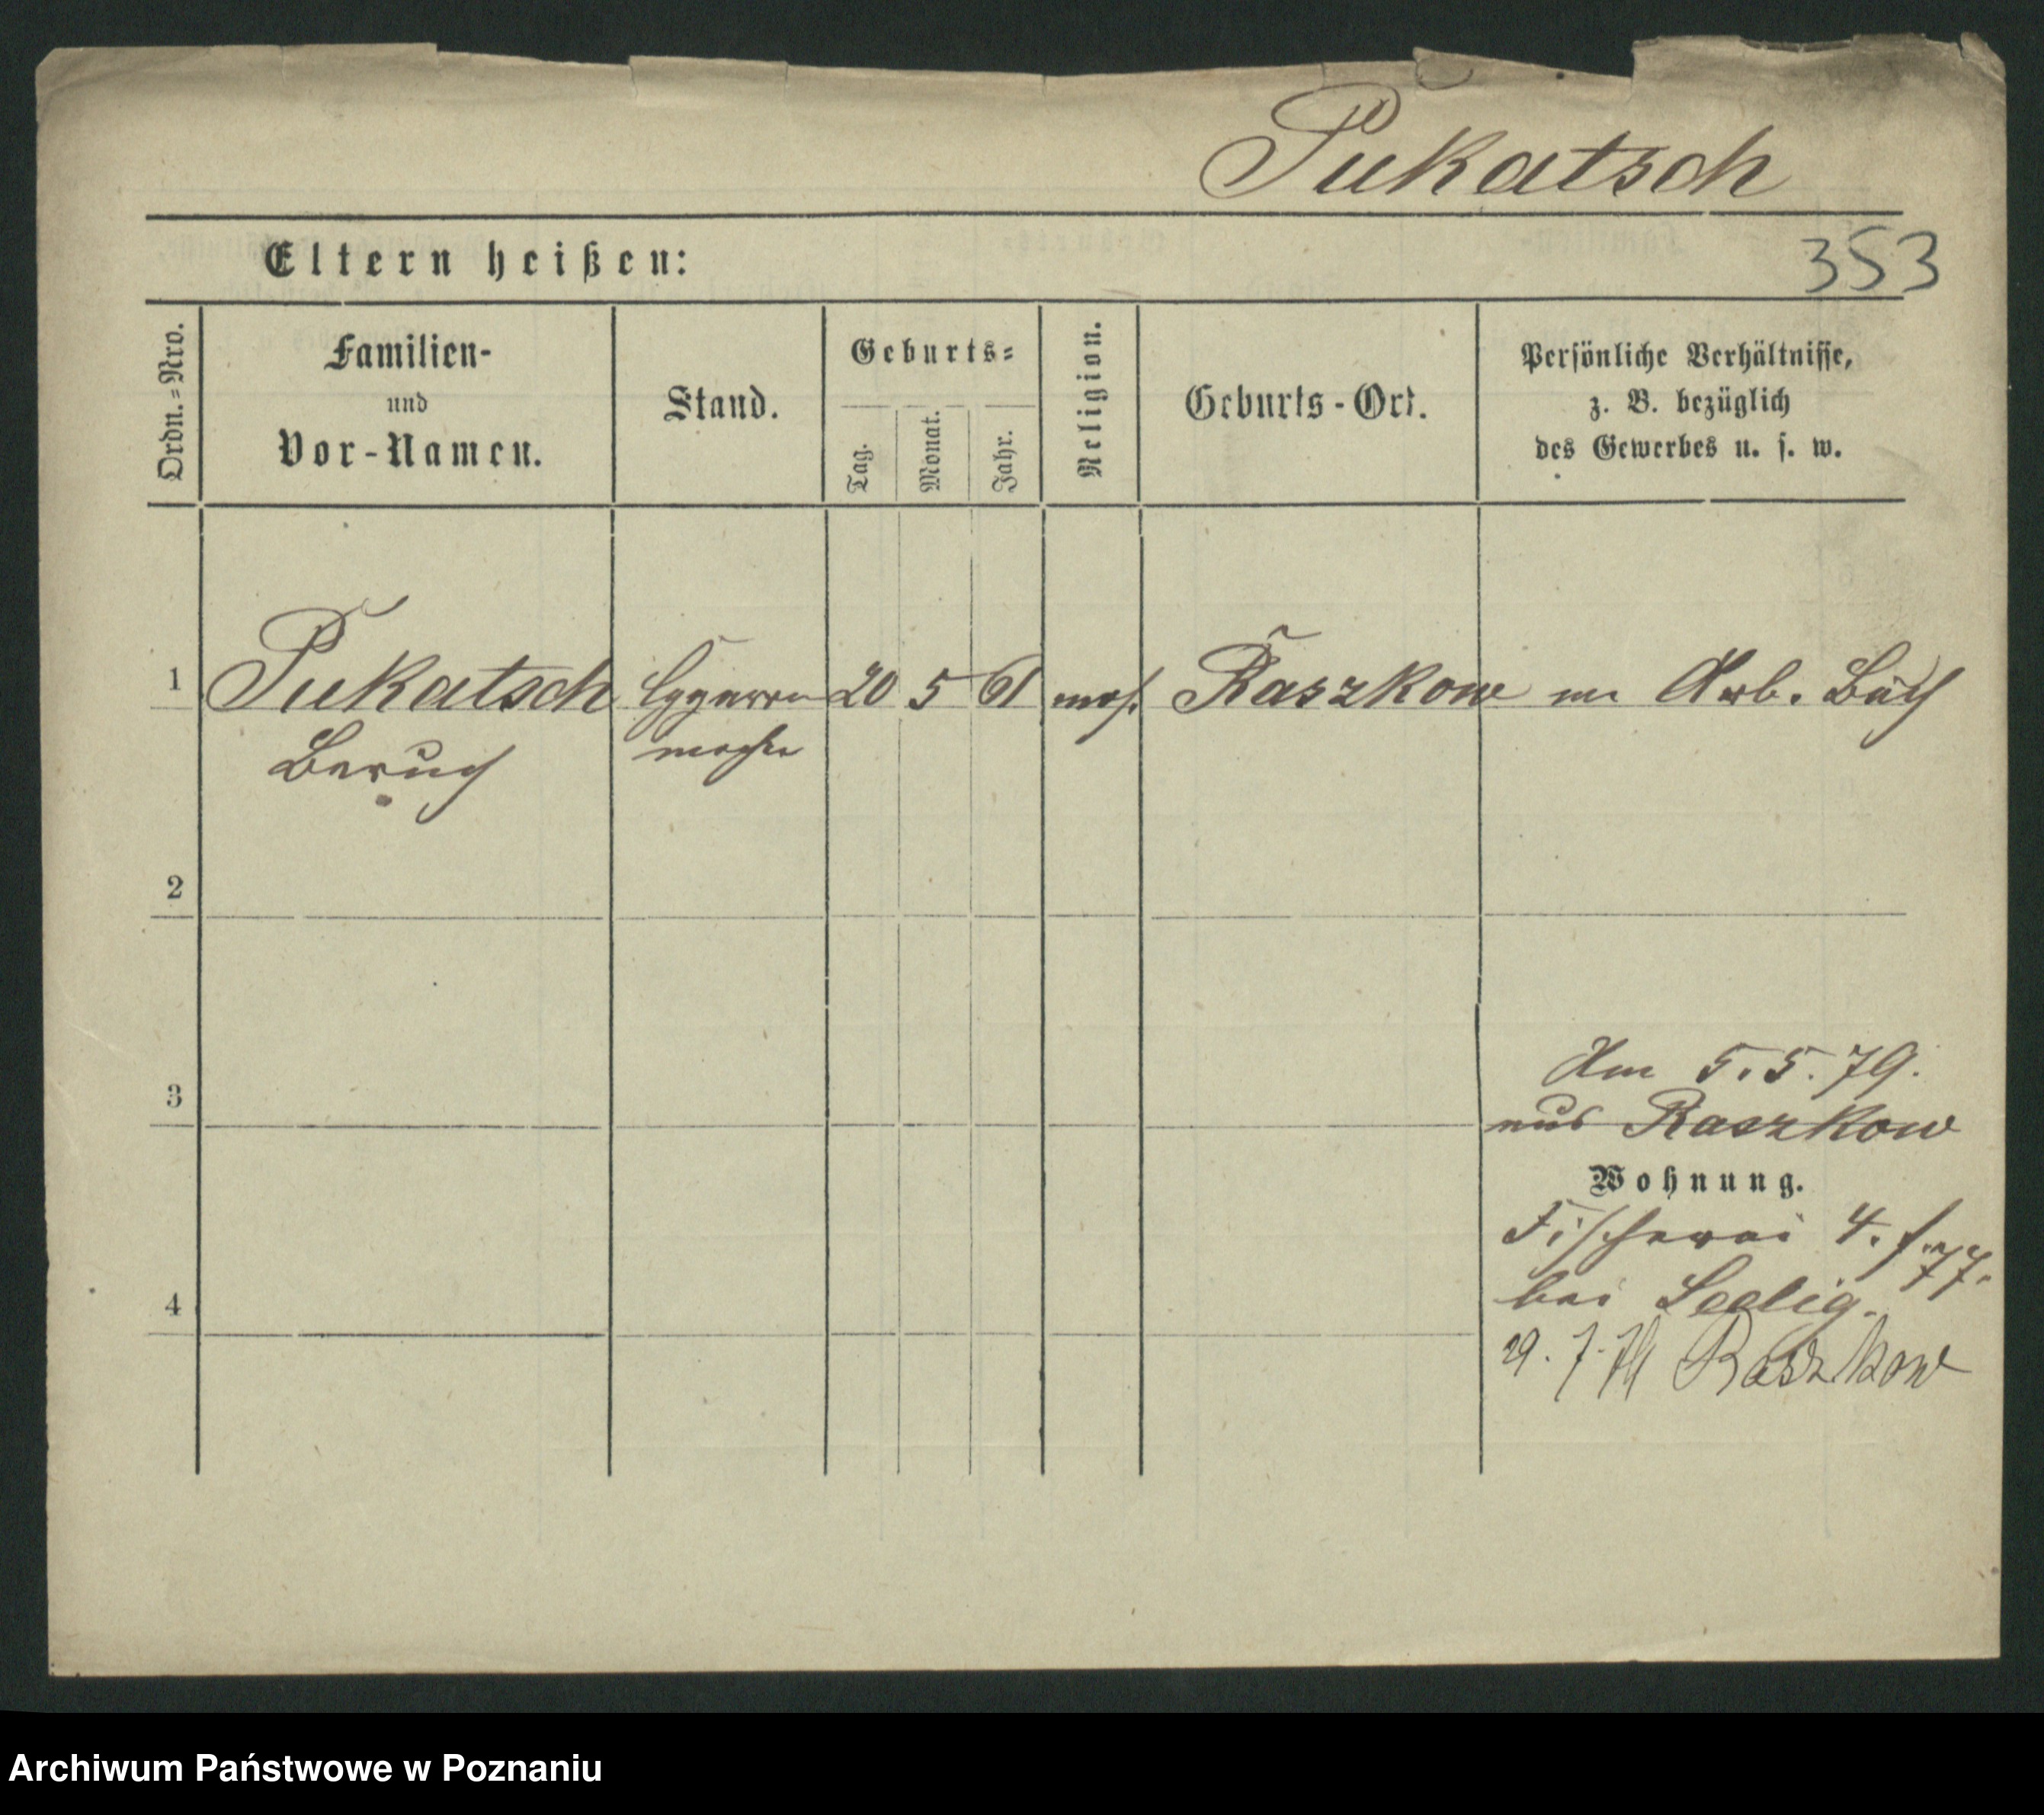 Pukatsch
353
Eltern heißen:
Ordn.=Nro.
Familien-
und
Vor-Namen.
Stand.
Geburts=
Tag.
Monat.
Jahr.
Religion.
Geburts-Ort.
Persönliche Verhältnisse,
z. B. bezüglich
des Gewerbes u. s. w.
1 Pukatsch Cygarren 20 5 61 mos. Raszkow Arb. Buch
Baruch macher
2
3
Am 5.5.79.
aus Raszkow
Wohnung.
Fischerei 4. f. 77.
4
bei Seelig.
29.7.79 Raszkow
Archiwum Państwowe w Poznaniu